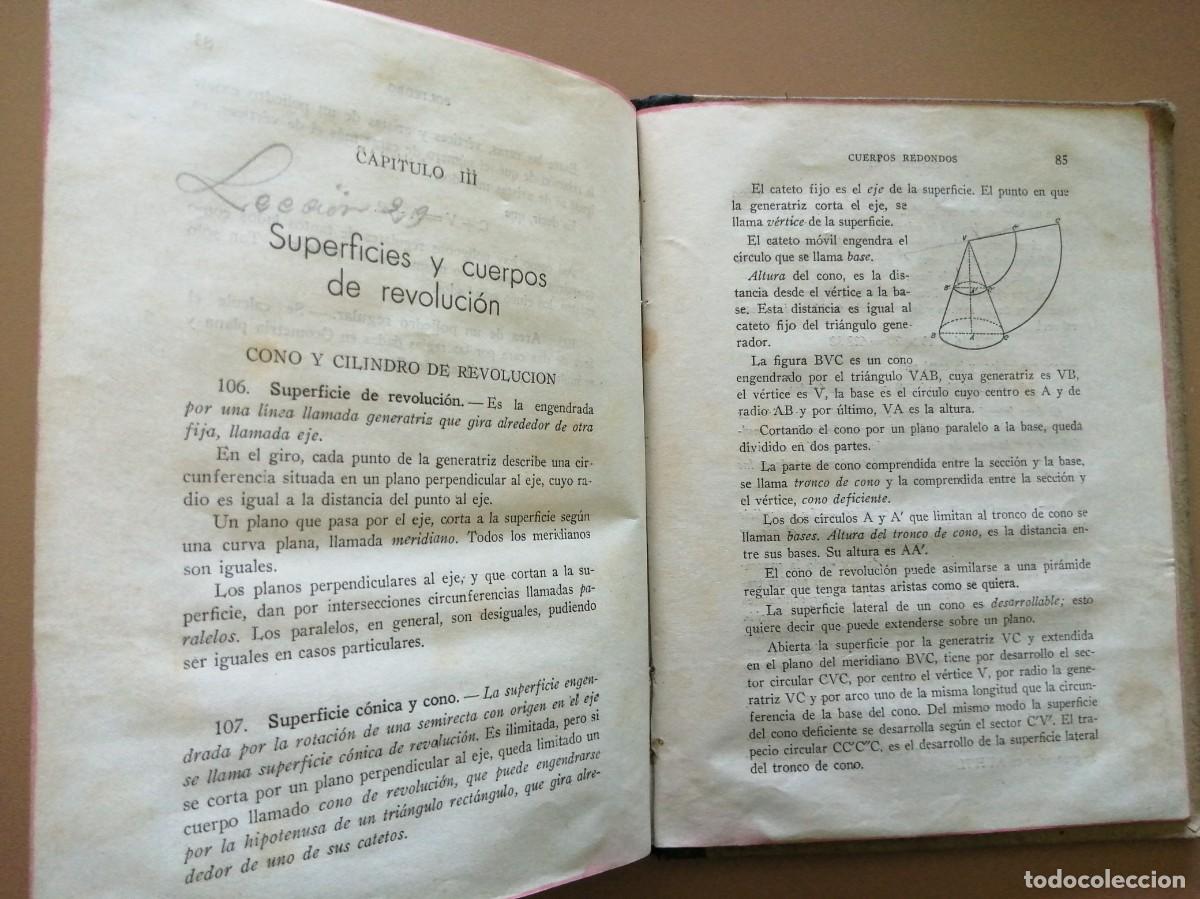 CAPITULO III
Lección 29
Superficies y cuerpos
de revolución
CONO Y CILINDRO DE REVOLUCION
106. Superficie de revolución. — Es la engendrada
por una línea llamada generatriz que gira alrededor de otra
fija, llamada eje.
En el giro, cada punto de la generatriz describe una cir-
cunferencia situada en un plano perpendicular al eje, cuyo ra-
dio es igual a la distancia del punto al eje.
Un plano que pasa por el eje, corta a la superficie según
una curva plana, llamada meridiano. Todos los meridianos
son iguales.
Los planos perpendiculares al eje, y que cortan a la su-
perficie, dan por intersecciones circunferencias llamadas pa-
ralelos. Los paralelos, en general, son desiguales, pudiendo
ser iguales en casos particulares.
107. Superficie cónica y cono. — La superficie engen-
drada por la rotación de una semirecta con origen en el eje
se llama superficie cónica de revolución. Es ilimitada, pero si
se corta por un plano perpendicular al eje, queda limitado un
cuerpo llamado cono de revolución, que puede engendrarse
por la hipotenusa de un triángulo rectángulo, que gira alre-
dedor de uno de sus catetos.
CUERPOS REDONDOS 85
El cateto fijo es el eje de la superficie. El punto en que
la generatriz corta el eje, se
llama vértice de la superficie.
El cateto móvil engendra el
círculo que se llama base.
Altura del cono, es la dis-
tancia desde el vértice a la ba-
se. Esta distancia es igual al
cateto fijo del triángulo gene-
rador.
La figura BVC es un cono
engendrado por el triángulo VAB, cuya generatriz es VB,
el vértice es V, la base es el círculo cuyo centro es A y de
radio AB y por último, VA es la altura.
Cortando el cono por un plano paralelo a la base, queda
dividido en dos partes.
La parte de cono comprendida entre la sección y la base,
se llama tronco de cono y la comprendida entre la sección y
el vértice, cono deficiente.
Los dos círculos A y A' que limitan al tronco de cono se
llaman bases. Altura del tronco de cono, es la distancia en-
tre sus bases. Su altura es AA'.
El cono de revolución puede asimilarse a una pirámide
regular que tenga tantas aristas como se quiera.
La superficie lateral de un cono es desarrollable; esto
quiere decir que puede extenderse sobre un plano.
Abierta la superficie por la generatriz VC y extendida
en el plano del meridiano BVC, tiene por desarrollo el sec-
tor circular CVC, por centro el vértice V, por radio la gene-
ratriz VC y por arco uno de la misma longitud que la circun-
ferencia de la base del cono. Del mismo modo la superficie
del cono deficiente se desarrolla según el sector C'V'. El tra-
pecio circular CC'C''C, es el desarrollo de la superficie lateral
del tronco de cono.
V
B
A
C
todocoleccion